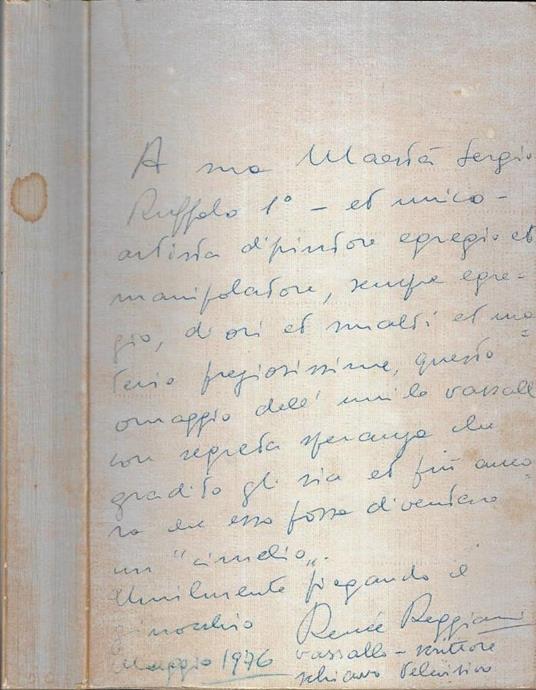 A sua Maestà Sergio
Ruffolo 1° - et unico -
artista dipintore egregio et
manipolatore, sempre egre-
gio, di ori et smalti et ma-
terie pregiosissime, questo
omaggio dell' umile vassallo
con segreta speranza che
gradito gli sia et più anco-
ra che esso possa diventare
un "cimelio".
Umilmente piegando il
ginocchio Renée Reggiani
vassallo - scrittore
Maggio 1976 schiavo televisivo